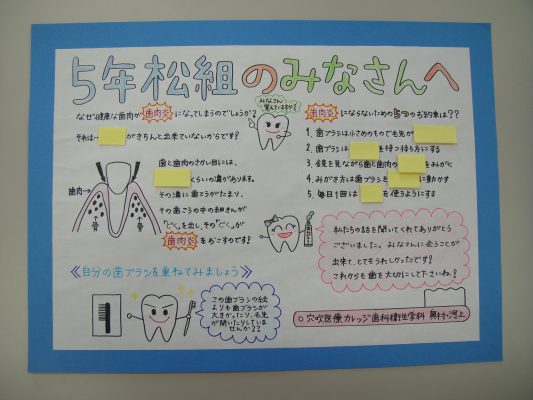 5年松組のみなさんへ
なぜ健康な歯肉が歯肉炎になってしまうのでしょうか?
それは…
がきちんと出来ていないからです!
歯と歯肉のさかい目には、
くらいの溝があります。
その溝に歯こうがたまり、
その歯こうの中の細きんが
「どく」を出し、その「どく」が
歯肉炎をおこすのです!
歯肉→
みなさん
覚えていますか?
歯肉炎にならないための5つのお約束は??
1. 歯ブラシは小さめのもので毛先が
2. 歯ブラシは
を持つ持ち方にする
3. 鏡を見ながら歯と歯肉の
をみがく
4. みがき方は歯ブラシを
に動かす
5. 毎日1回は
を使うようにする
私たちの話を聞いてくれてありがとう
ございました。みなさんに会うことが
出来て、とてもうれしかったです!
これからも歯を大切にして下さいね!
《自分の歯ブラシを重ねてみましょう》
この歯ブラシの絵
よりも歯ブラシが
大きかったり、毛先
が開いたりしていま
せんか??
穴吹医療カレッジ歯科衛生学科